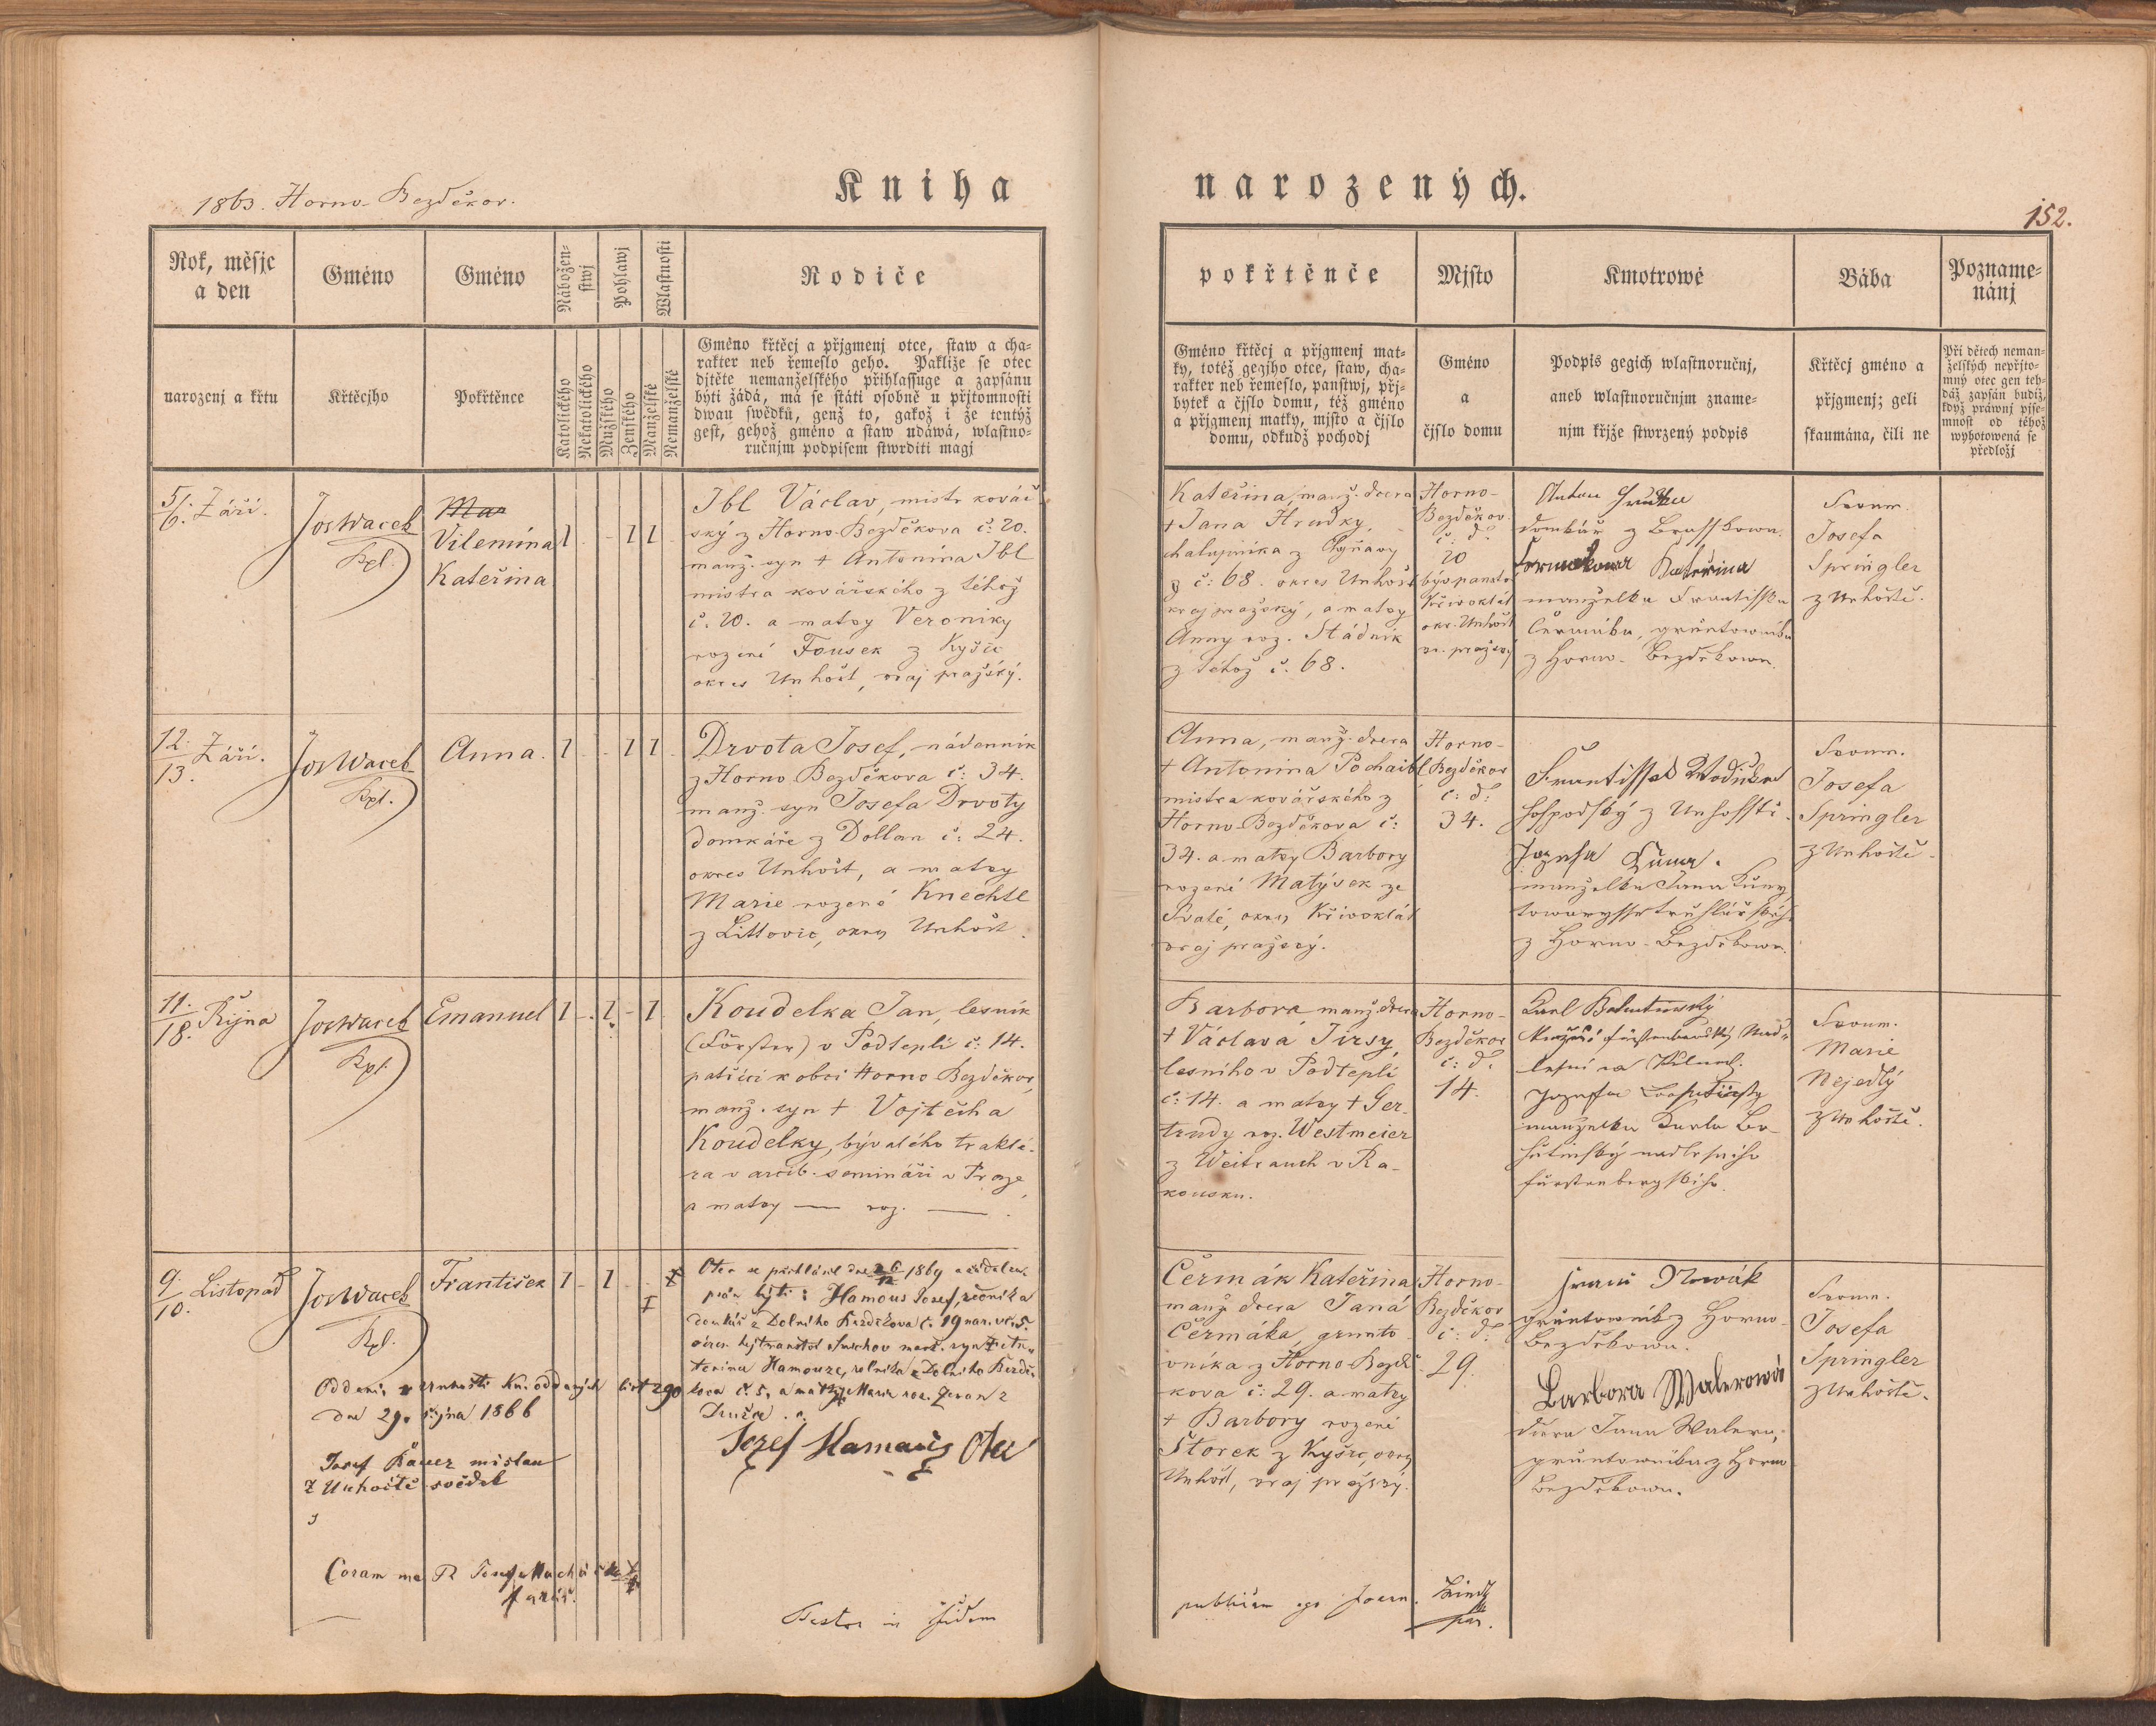 1863. Horno-Bezděkov.
Kniha
narozených.
152.
Rok, měsjc
a den
Gméno
Gméno
Nábožen-
stwj
Pohlawj
Wlastnosti
Rodiče
narozenj a křtu
Křtěcjho
Pokřtěnce
Katolického
Nekatolického
Mužského
Ženského
Manželské
Nemanželské
Gméno křtěcj a přjgmenj otce, staw a cha-
rakter neb řemeslo geho. Pakliže se otec
djtěte nemanželského přihlassuge a zapsánu
býti žádá, má se státi osobně u přjtomnosti
dwau swědků, genž to, gakož i že tentýž
gest, gehož gméno a staw udáwá, wlastno-
ručnjm podpisem stwrditi magj
pokřtěnče
Mjsto
Kmotrowé
Bába
Pozname-
nánj
Gméno křtěcj a přjgmenj mat-
ky, totéž gegjho otce, staw, cha-
rakter neb řemeslo, panstwj, přj-
bytek a čjslo domu, též gméno
a přjgmenj matky, mjsto a čjslo
domu, odkudž pochodj
Gméno
a
čjslo domu
Podpis gegich wlastnoručnj,
aneb wlastnoručnjm zname-
njm křjže stwrzený podpis
Křtěcj gméno a
přjgmenj; geli
skaumána, čili ne
Při dětech neman-
želských nepřjto-
mný otec gen teh-
dáž zapsán budiž,
když práwnj pjse-
mnost od téhož
wyhotowená se
předložj
5/6. Září.
Jos Wacek
Kpl.
Mar
Vilemína
Kateřina
1 1 1
Ibl Václav, mistr kovář-
ský z Horno-Bezděkova č: 20.
manž. syn + Antonína Ibl
mistra kovářského z téhož
č. 20. a matky Veroniky
rozené Fousek z Kyšic
okres Unhošt, kraj pražský.
Kateřina, manž. dcera
+ Jana Hrudky,
chalupníka z
z č: 68. okres Unhošt
kraj pražský, a matky
Anny roz. Stádník
z téhož č. 68.
Horno-
Bezděkov
č: d:
20
býv. panství
Křivoklát
okr. Unhošt
kr. pražský
Anton Hrudka
domkář z
Čermakowa Kateřina
manželka Frantisska
Čermáka, gruntowníka
z Horno-Bezděkowa.
Zkoum.
Josefa
Springler
z Unhoště.
12./13. Září.
Jos Wacek
Kpl.
Anna.
1 1 1
Drvota Josef, nádenník
z Horno Bezděkova č: 34.
manž. syn Josefa Drvoty
domkáře z Dollan č: 24.
okres Unhošt, a matky
Marie rozené Knechtl
z Littovic, okres Unhošt.
Anna, manž. dcera
+ Antonína Pochaibl
mistra kovářského z
Horno-Bezděkova č:
34. a matky Barbory
rozené Matýsek ze
Svaté, okres Křivoklát
kraj pražský.
Horno-
Bezděkov
č: d:
34.
Frantissek Wodička
hospodský z Unhosstě.
Jozefa Kuna.
manželka Jana Kuny
towarysse truhlářského
z Horno-Bezděkowa.
Zkoum.
Josefa
Springler
z Unhoště.
11./18. Října
Jos Wacek
Kpl.
Emanuel
1 1 1
Koudelka Jan, lesník
(Förster) v Podteplí č: 14.
patřící k obci Horno Bezděkov,
manž. syn + Vojtěcha
Koudelky, bývalého trakté-
ra v arcib. semináři v Praze,
a matky — roz. —.
Barbora, manž. dcera
+ Václava Jirsy,
lesního v Podteplí
č: 14. a matky + Ger-
trudy roz. Westmeier
z Weitrauch v Ra-
kousku.
Horno-
Bezděkov
č: d:
14.
Karl
manželka Karla
fürstenbergského.
Zkoum.
Marie
Nejedlý
z Unhoště.
9./10. Listopad
Jos Wacek
Kpl.
František
1 1
Otec se přihlásil dne 26/12 1869 a
Hamous Josef,
domkář z Dolního Bezděkova č. 19
okres. hejtmanství Smíchov manž. syn
Hamouze, rolníka z Dolního Bezdě-
kova č. 5, a matky Marie roz.
Jozef Hamouz Otec
Oddáni v Unhošti Kn. oddaných list 290
dne 29. října 1866
Josef
z Unhoště svědek
Coram me
farář.
Čermák Kateřina
manž. dcera Jana
Čermáka, grunto-
vníka z Horno-Bezdě-
kova č: 29. a matky
+ Barbory rozené
Štorek z Kyšic, okres
Unhošt, kraj pražský.
Horno-
Bezděkov
č: d:
29.
Nowák
gruntowník z Horno-
Bezděkowa.
Barbora Walerowá
dcera Jana Walera,
gruntowníka z Horno
Bezděkowa.
Zkoum.
Josefa
Springler
z Unhoště.